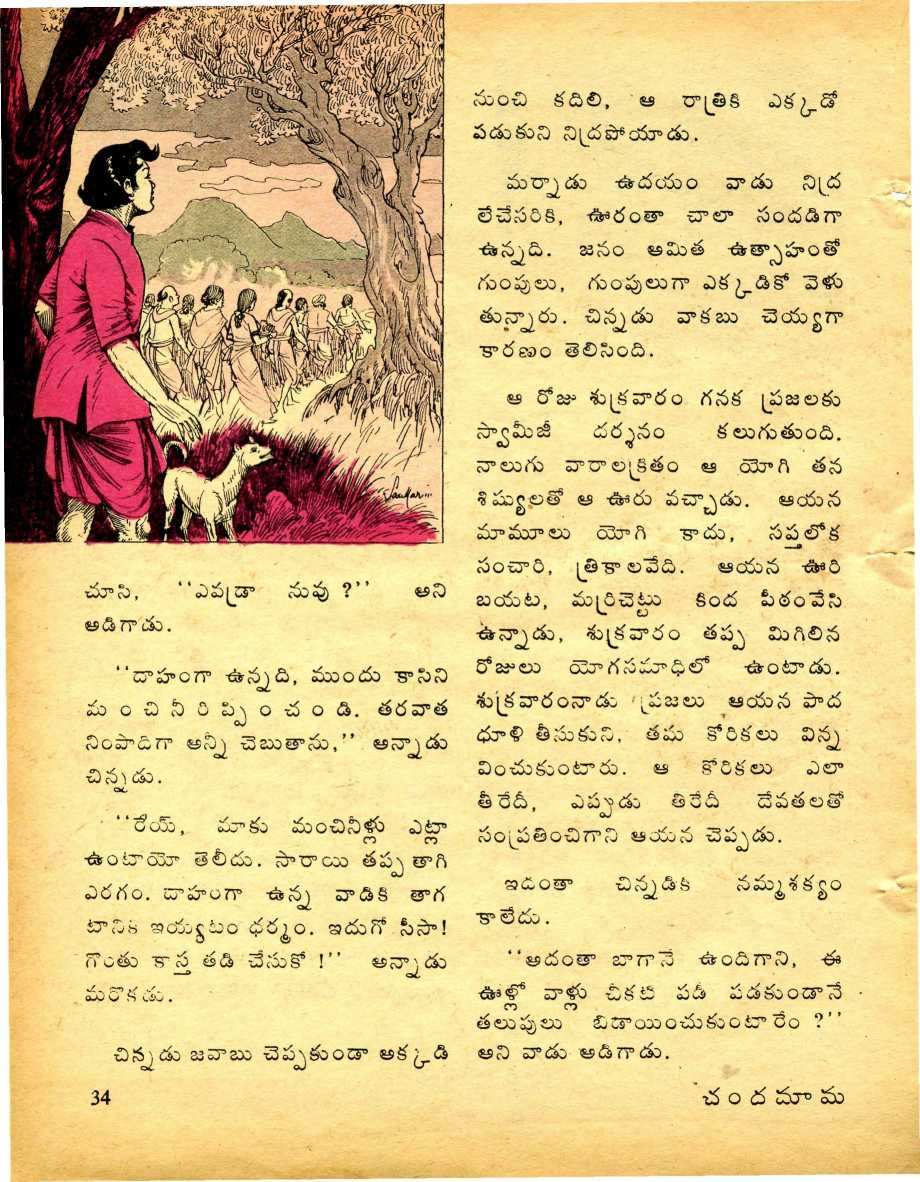 Sankar...
చూసి, ‘‘ఎవడ్రా నువు ?’’ అని
అడిగాడు.
‘‘దాహంగా ఉన్నది, ముందు కాసిని
మంచినీరిప్పించండి. తరవాత
నింపాదిగా అన్నీ చెబుతాను,’’ అన్నాడు
చిన్నడు.
‘‘రేయ్, మాకు మంచినీళ్లు ఎట్లా
ఉంటాయో తెలీదు. సారాయి తప్ప తాగి
ఎరగం. దాహంగా ఉన్న వాడికి తాగ
టానికి ఇయ్యటం ధర్మం. ఇదుగో సీసా!
గొంతు కాస్త తడి చేసుకో !’’ అన్నాడు
మరొకడు.
చిన్నడు జవాబు చెప్పకుండా అక్కడి
నుంచి కదిలి, ఆ రాత్రికి ఎక్కడో
పడుకుని నిద్రపోయాడు.
మర్నాడు ఉదయం వాడు నిద్ర
లేచేసరికి, ఊరంతా చాలా సందడిగా
ఉన్నది. జనం అమిత ఉత్సాహంతో
గుంపులు, గుంపులుగా ఎక్కడికో వెళు
తున్నారు. చిన్నడు వాకబు చెయ్యగా
కారణం తెలిసింది.
ఆ రోజు శుక్రవారం గనక ప్రజలకు
స్వామీజీ దర్శనం కలుగుతుంది.
నాలుగు వారాలక్రితం ఆ యోగి తన
శిష్యులతో ఆ ఊరు వచ్చాడు. ఆయన
మామూలు యోగి కాదు, సప్తలోక
సంచారి, త్రికాలవేది. ఆయన ఊరి
బయట, మర్రిచెట్టు కింద పీఠంవేసి
ఉన్నాడు, శుక్రవారం తప్ప మిగిలిన
రోజులు యోగసమాధిలో ఉంటాడు.
శుక్రవారంనాడు ప్రజలు ఆయన పాద
ధూళి తీసుకుని, తమ కోరికలు విన్న
వించుకుంటారు. ఆ కోరికలు ఎలా
తీరేదీ, ఎప్పుడు తిరేదీ దేవతలతో
సంప్రతించిగాని ఆయన చెప్పడు.
ఇదంతా చిన్నడికి నమ్మశక్యం
కాలేదు.
‘‘అదంతా బాగానే ఉందిగాని, ఈ
ఊళ్లో వాళ్లు చీకటి పడీ పడకుండానే
తలుపులు బిడాయించుకుంటారేం ?’’
అని వాడు అడిగాడు.
34
చందమామ